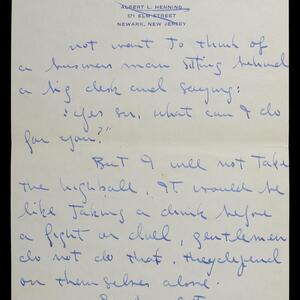 ALBERT L. HENNING
571 ELM STREET
NEWARK, NEW JERSEY
not want to think of
a business man sitting behind
a big desk and saying:
"Yes sir, what can I do
for you?"
But I will not take
the highball. It would be
like taking a drink before
a fight or duel, gentlemen
do not do that, they depend
on themselves alone.